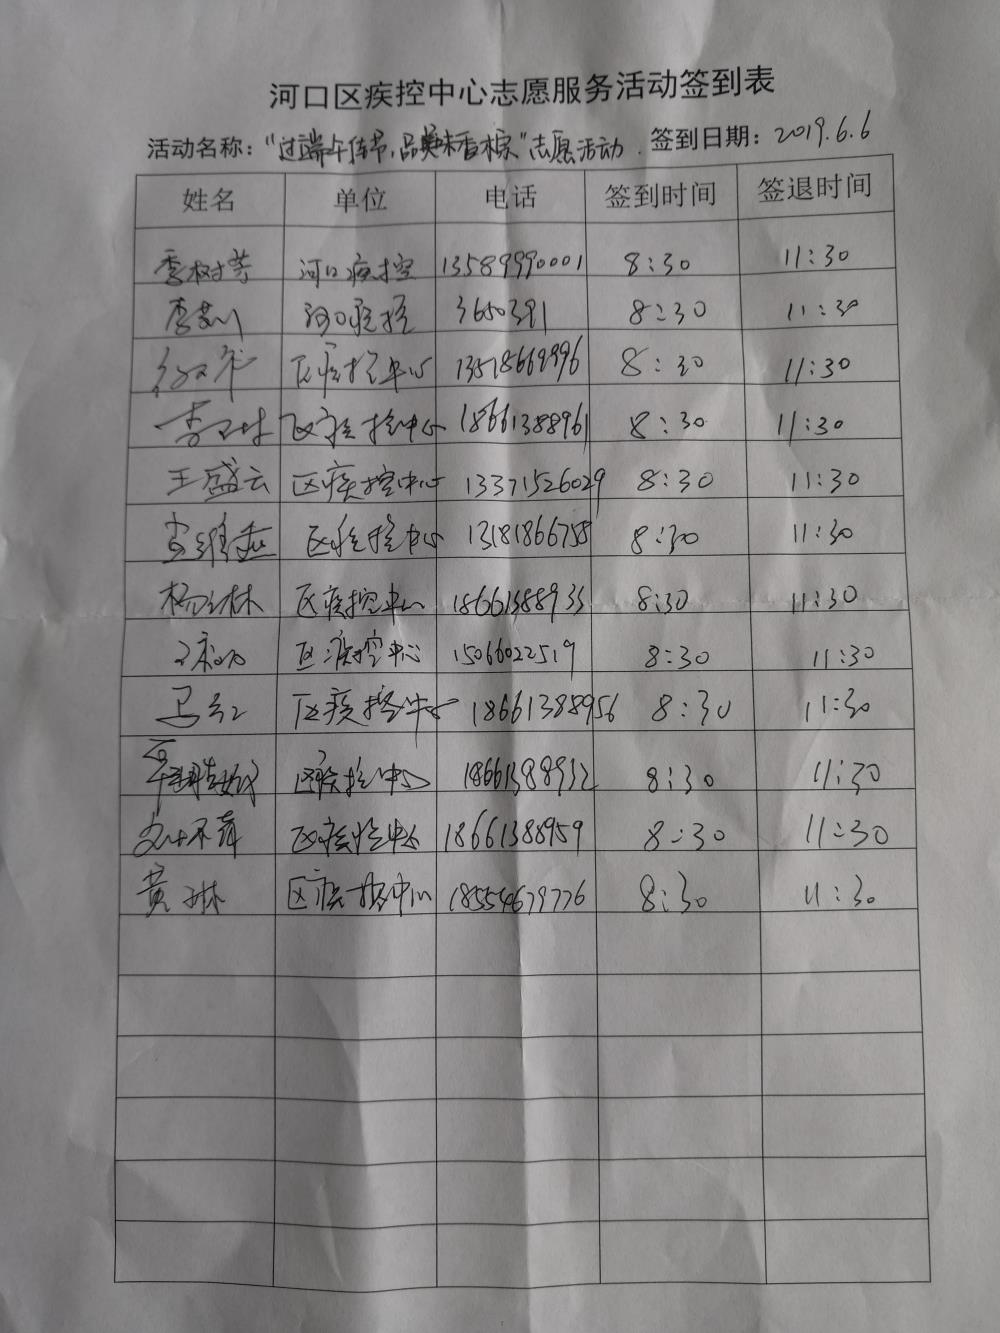 河口区疾控中心志愿服务活动签到表
活动名称："过端午佳节,品美味香粽"志愿活动. 签到日期：2019.6.6
姓名 单位 电话 签到时间 签退时间
李树芳 河口疾控 13589990001 8:30 11:30
河口疾控 3650391 8:30 11:30
区疾控中心 8:30 11:30
区疾控中心 18661388961 8:30 11:30
王盛云 区疾控中心 13371526029 8:30 11:30
区疾控中心 13181866758 8:30 11:30
杨红林 区疾控中心 18661388933 8:30 11:30
区疾控中心 15066022519 8:30 11:30
马红 区疾控中心 18661388956 8:30 11:30
区疾控中心 18661388932 8:30 11:30
区疾控中心 18661388959 8:30 11:30
黄琳 区疾控中心 18554679776 8:30 11:30